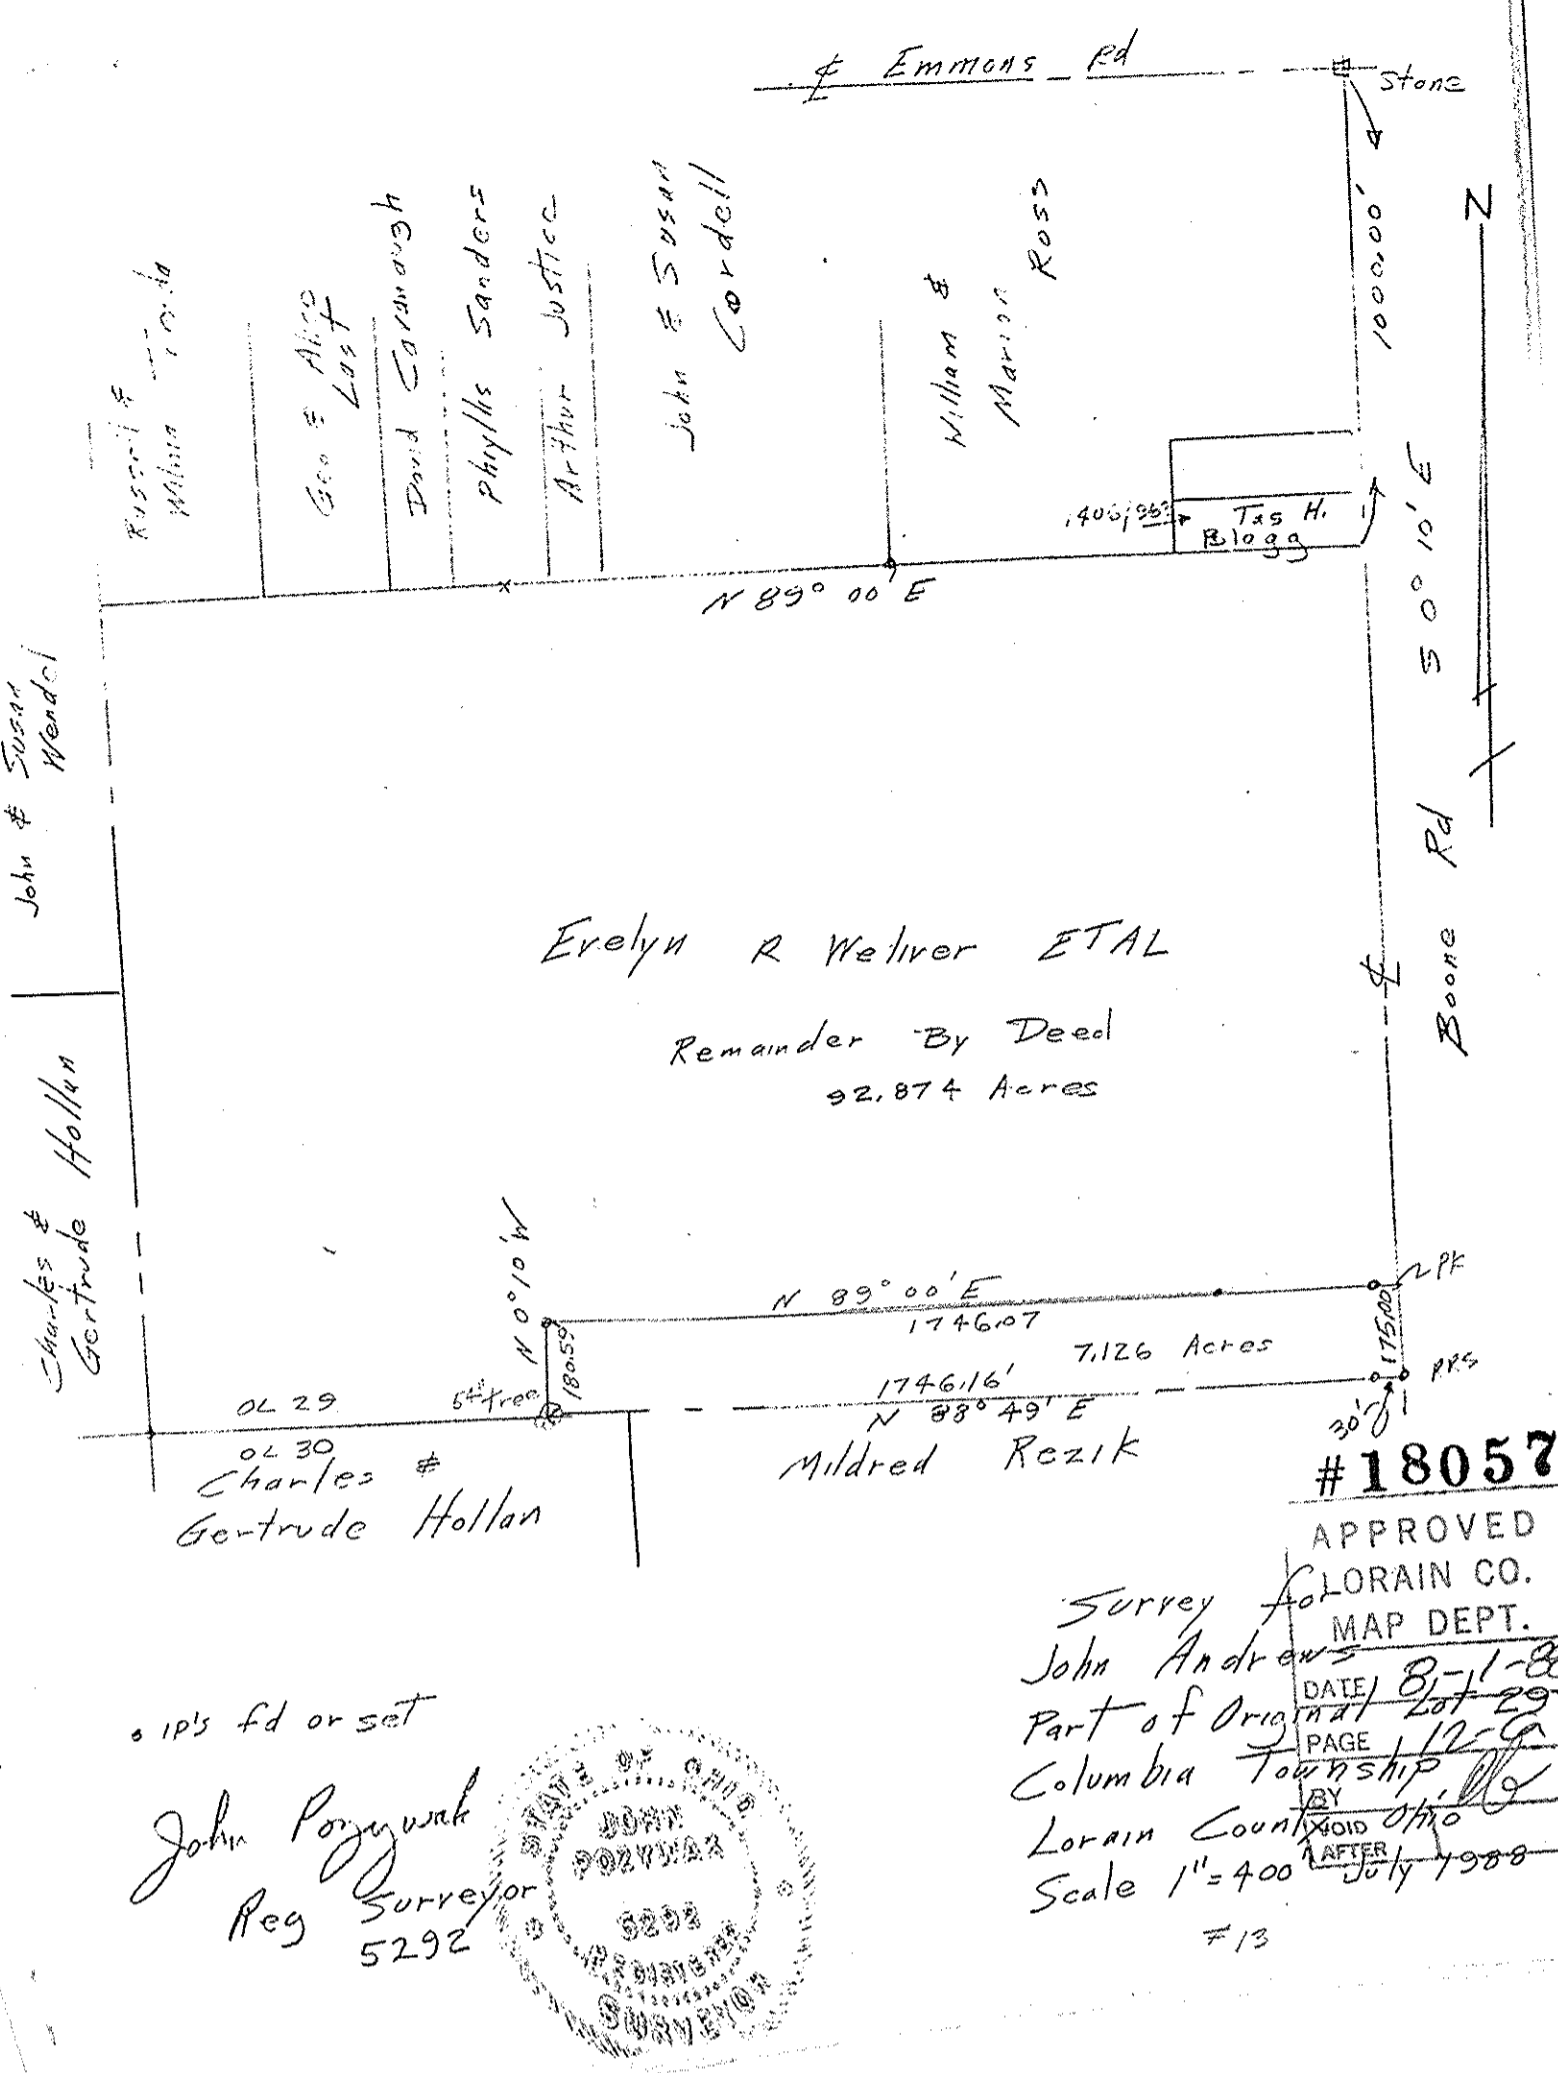 ℄ Emmons Rd
Stone
1000.00'
N
Russell &
Wilma
Geo & Alice
Last
David Cavanaugh
Phyllis Sanders
Arthur Justice
John & Susan
Cordell
William &
Marion
Ross
Jas H.
Blogg
N 89° 00' E
S 0° 10' E
John & Susan
Wendel
Boone Rd
℄
Evelyn R Weliver ETAL
Remainder By Deed
92.874 Acres
Charles &
Gertrude Hollan
N 0° 10' W
180.59
N 89° 00' E
1746.07
7.126 Acres
PK
175.00
1746.16'
N 88° 49' E
30'
OL 29
OL 30
Charles &
Gertrude Hollan
Mildred Rezik
#18057
APPROVED
LORAIN CO.
MAP DEPT.
DATE 8-1-88
PAGE 12-
BY
VOID
AFTER
Survey for
John Andrews
Part of Original Lot 29
Columbia Township
Lorain County Ohio
Scale 1"=400' July 1988
#13
• IP's fd or set
John Pozywak
Reg Surveyor
5292
STATE OF OHIO
JOHN
POZYWAK
5292
REGISTERED
SURVEYOR